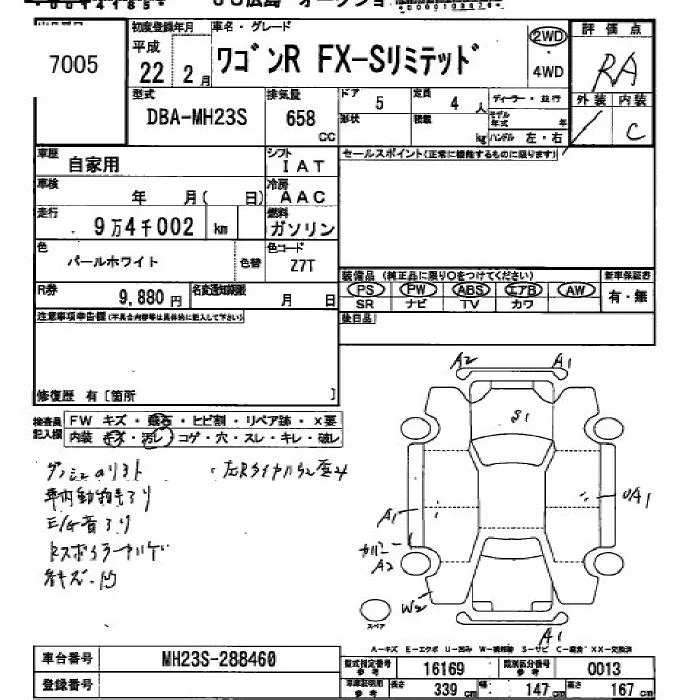 7005
初度登録年月
平成
22年 2月
車名・グレード
ワゴンR FX-Sリミテッド
2WD
4WD
評価点
RA
外装 内装
/ C
型式
DBA-MH23S
排気量
658 cc
ドア
5
形状
定員
4人
積載
kg
ディーラー・並行
モデル年式 年
ハンドル 左・右
車歴
自家用
シフト
IAT
セールスポイント(正常に機能するものに限ります)
車検
年 月( 日)
冷房
AAC
走行
9万4千002 km
燃料
ガソリン
色
パールホワイト
色替
色コード
Z7T
装備品 (純正品に限り○をつけてください)
新車保証書
PS PW ABS エアB AW
有・無
SR ナビ TV カワ
R券
9,880円
名変通知期限
月 日
後日品
注意事項申告欄(不具合内容等は具体的に記入して下さい)
修復歴 有[箇所 ]
検査員記入欄
FW キズ・飛石・ヒビ割・リペア跡・×要
内装 キズ・汚レ・コゲ・穴・スレ・キレ・破レ
車内動物毛有り
E/G音有り
A2 A1
S1
A1
UA1
カバー
A2
W2
スペア
A1
A-キズ E-エクボ U-凹み W-補修跡 S-サビ C-腐食 XX-交換済
車台番号
MH23S-288460
登録番号
型式指定番号 参考
16169
類別区分番号 参考
0013
車庫証明用 参考
長さ 339 cm 幅 147 cm 高さ 167 cm